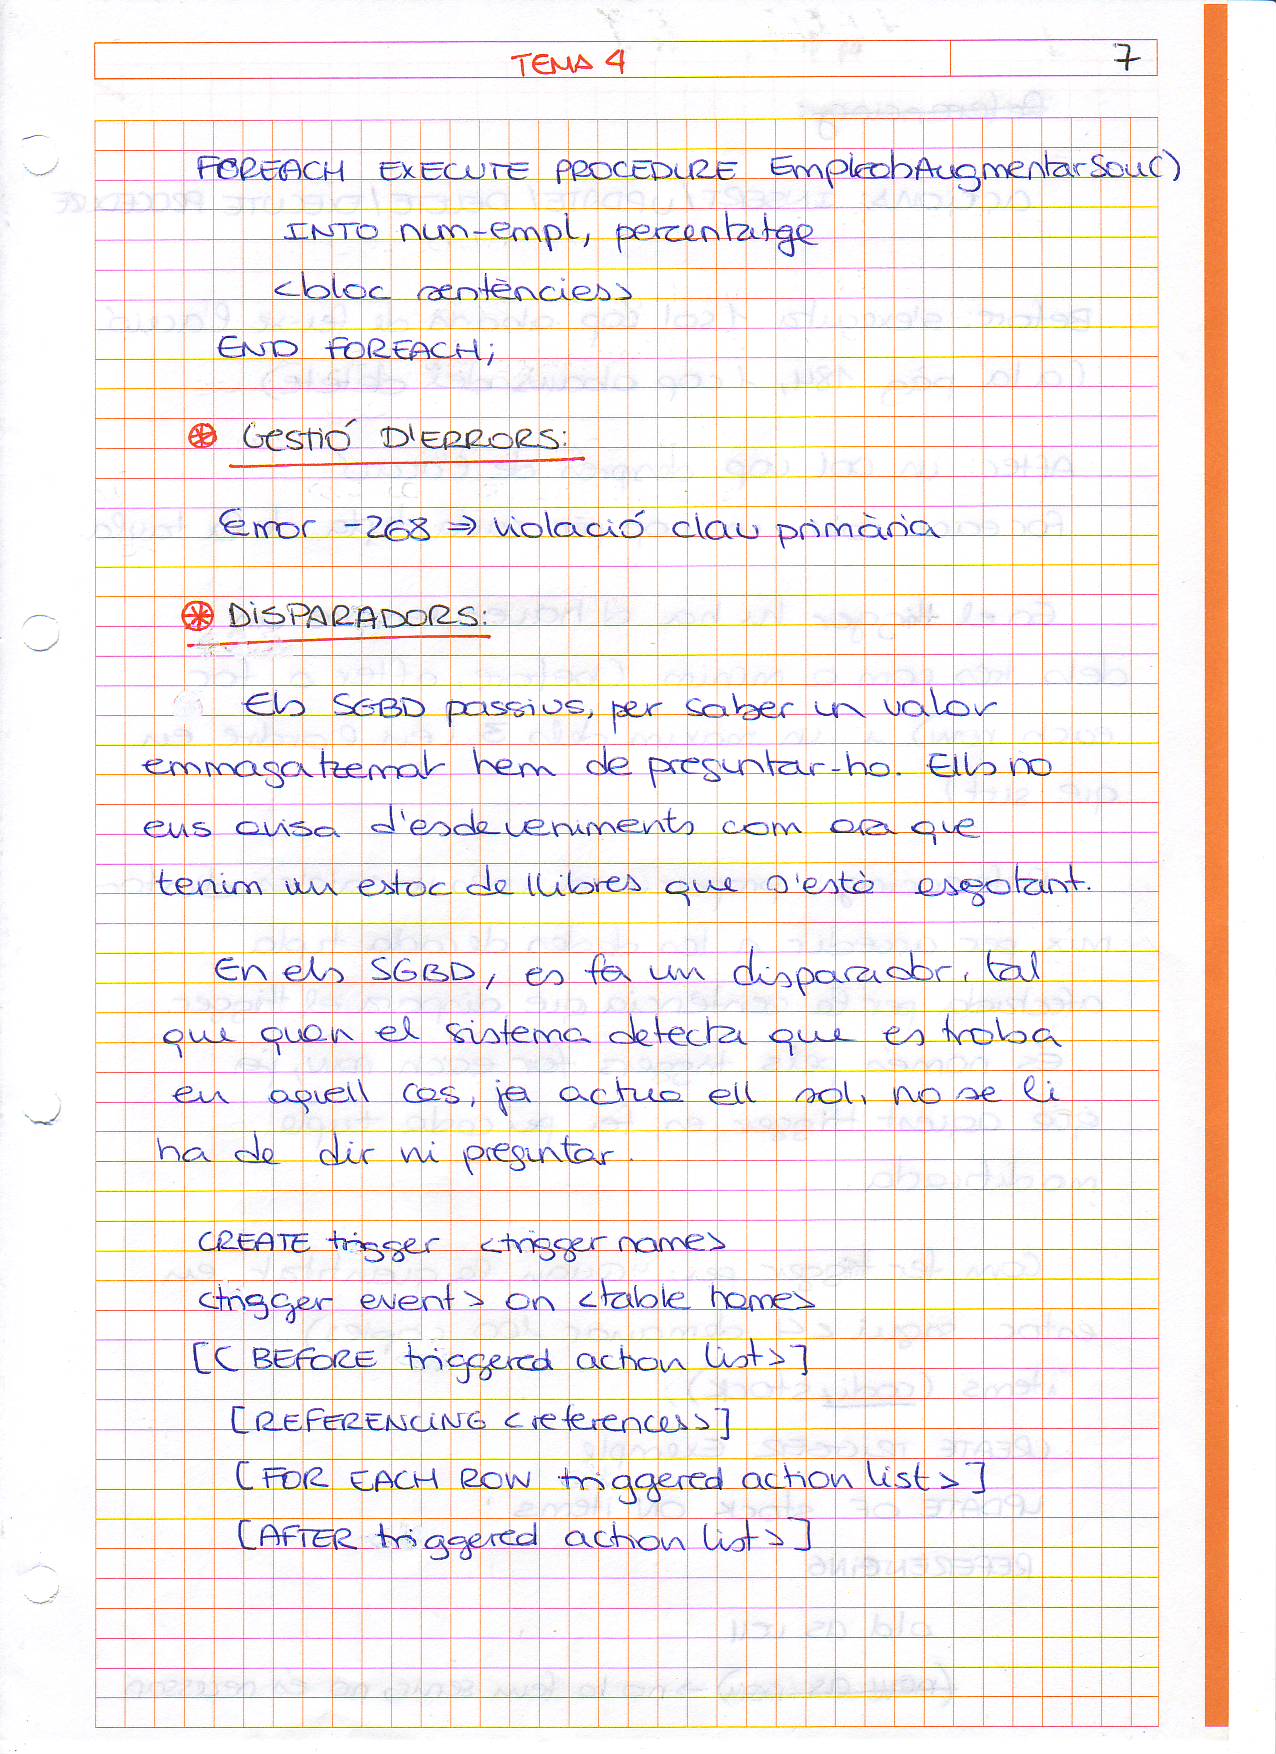 TEMA 4
7
FOREACH EXECUTE PROCEDURE EmpleobAugmentarSou()
INTO num-empl, percentatge
<bloc sentències>
END FOREACH;
Gestió D'ERRORS:
Error -268 ⇒ violació clau primària
DISPARADORS:
Els SGBD passius, per saber un valor
emmagatzemat hem de preguntar-ho. Ells no
ens avisa d'esdeveniments com ara que
tenim un estoc de llibres que s'està esgotant.
En els SGBD, es fa un disparador, tal
que quan el sistema detecta que es troba
en aquell cas, ja actua ell sol, no se li
ha de dir ni preguntar.
CREATE trigger <trigger name>
<trigger event> on <table name>
[< BEFORE triggered action list>]
[REFERENCING <references>]
[FOR EACH ROW triggered action list>]
[AFTER triggered action list>]